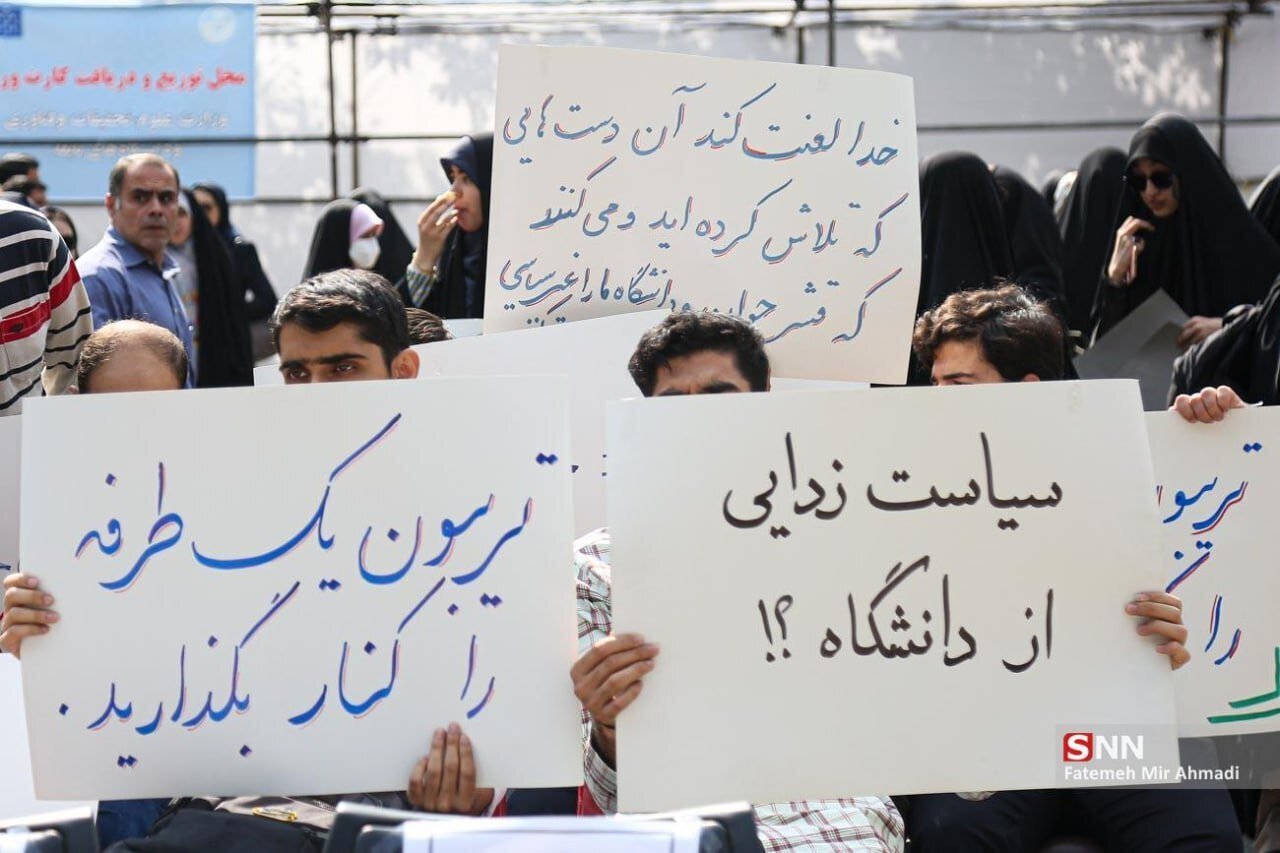 محل توزیع و دریافت کارت ور
وزارت علوم، تحقیقات و فناوری
خدا لعنت کند آن دست‌هایی
که تلاش کرده اید و می کنند
که قشر جوان و دانشگاه ما را غیرسیاسی
تریبون یک طرفه
را کنار بگذارید.
سیاست زدایی
از دانشگاه ؟!
تریبون
را
SNN
Fatemeh Mir Ahmadi